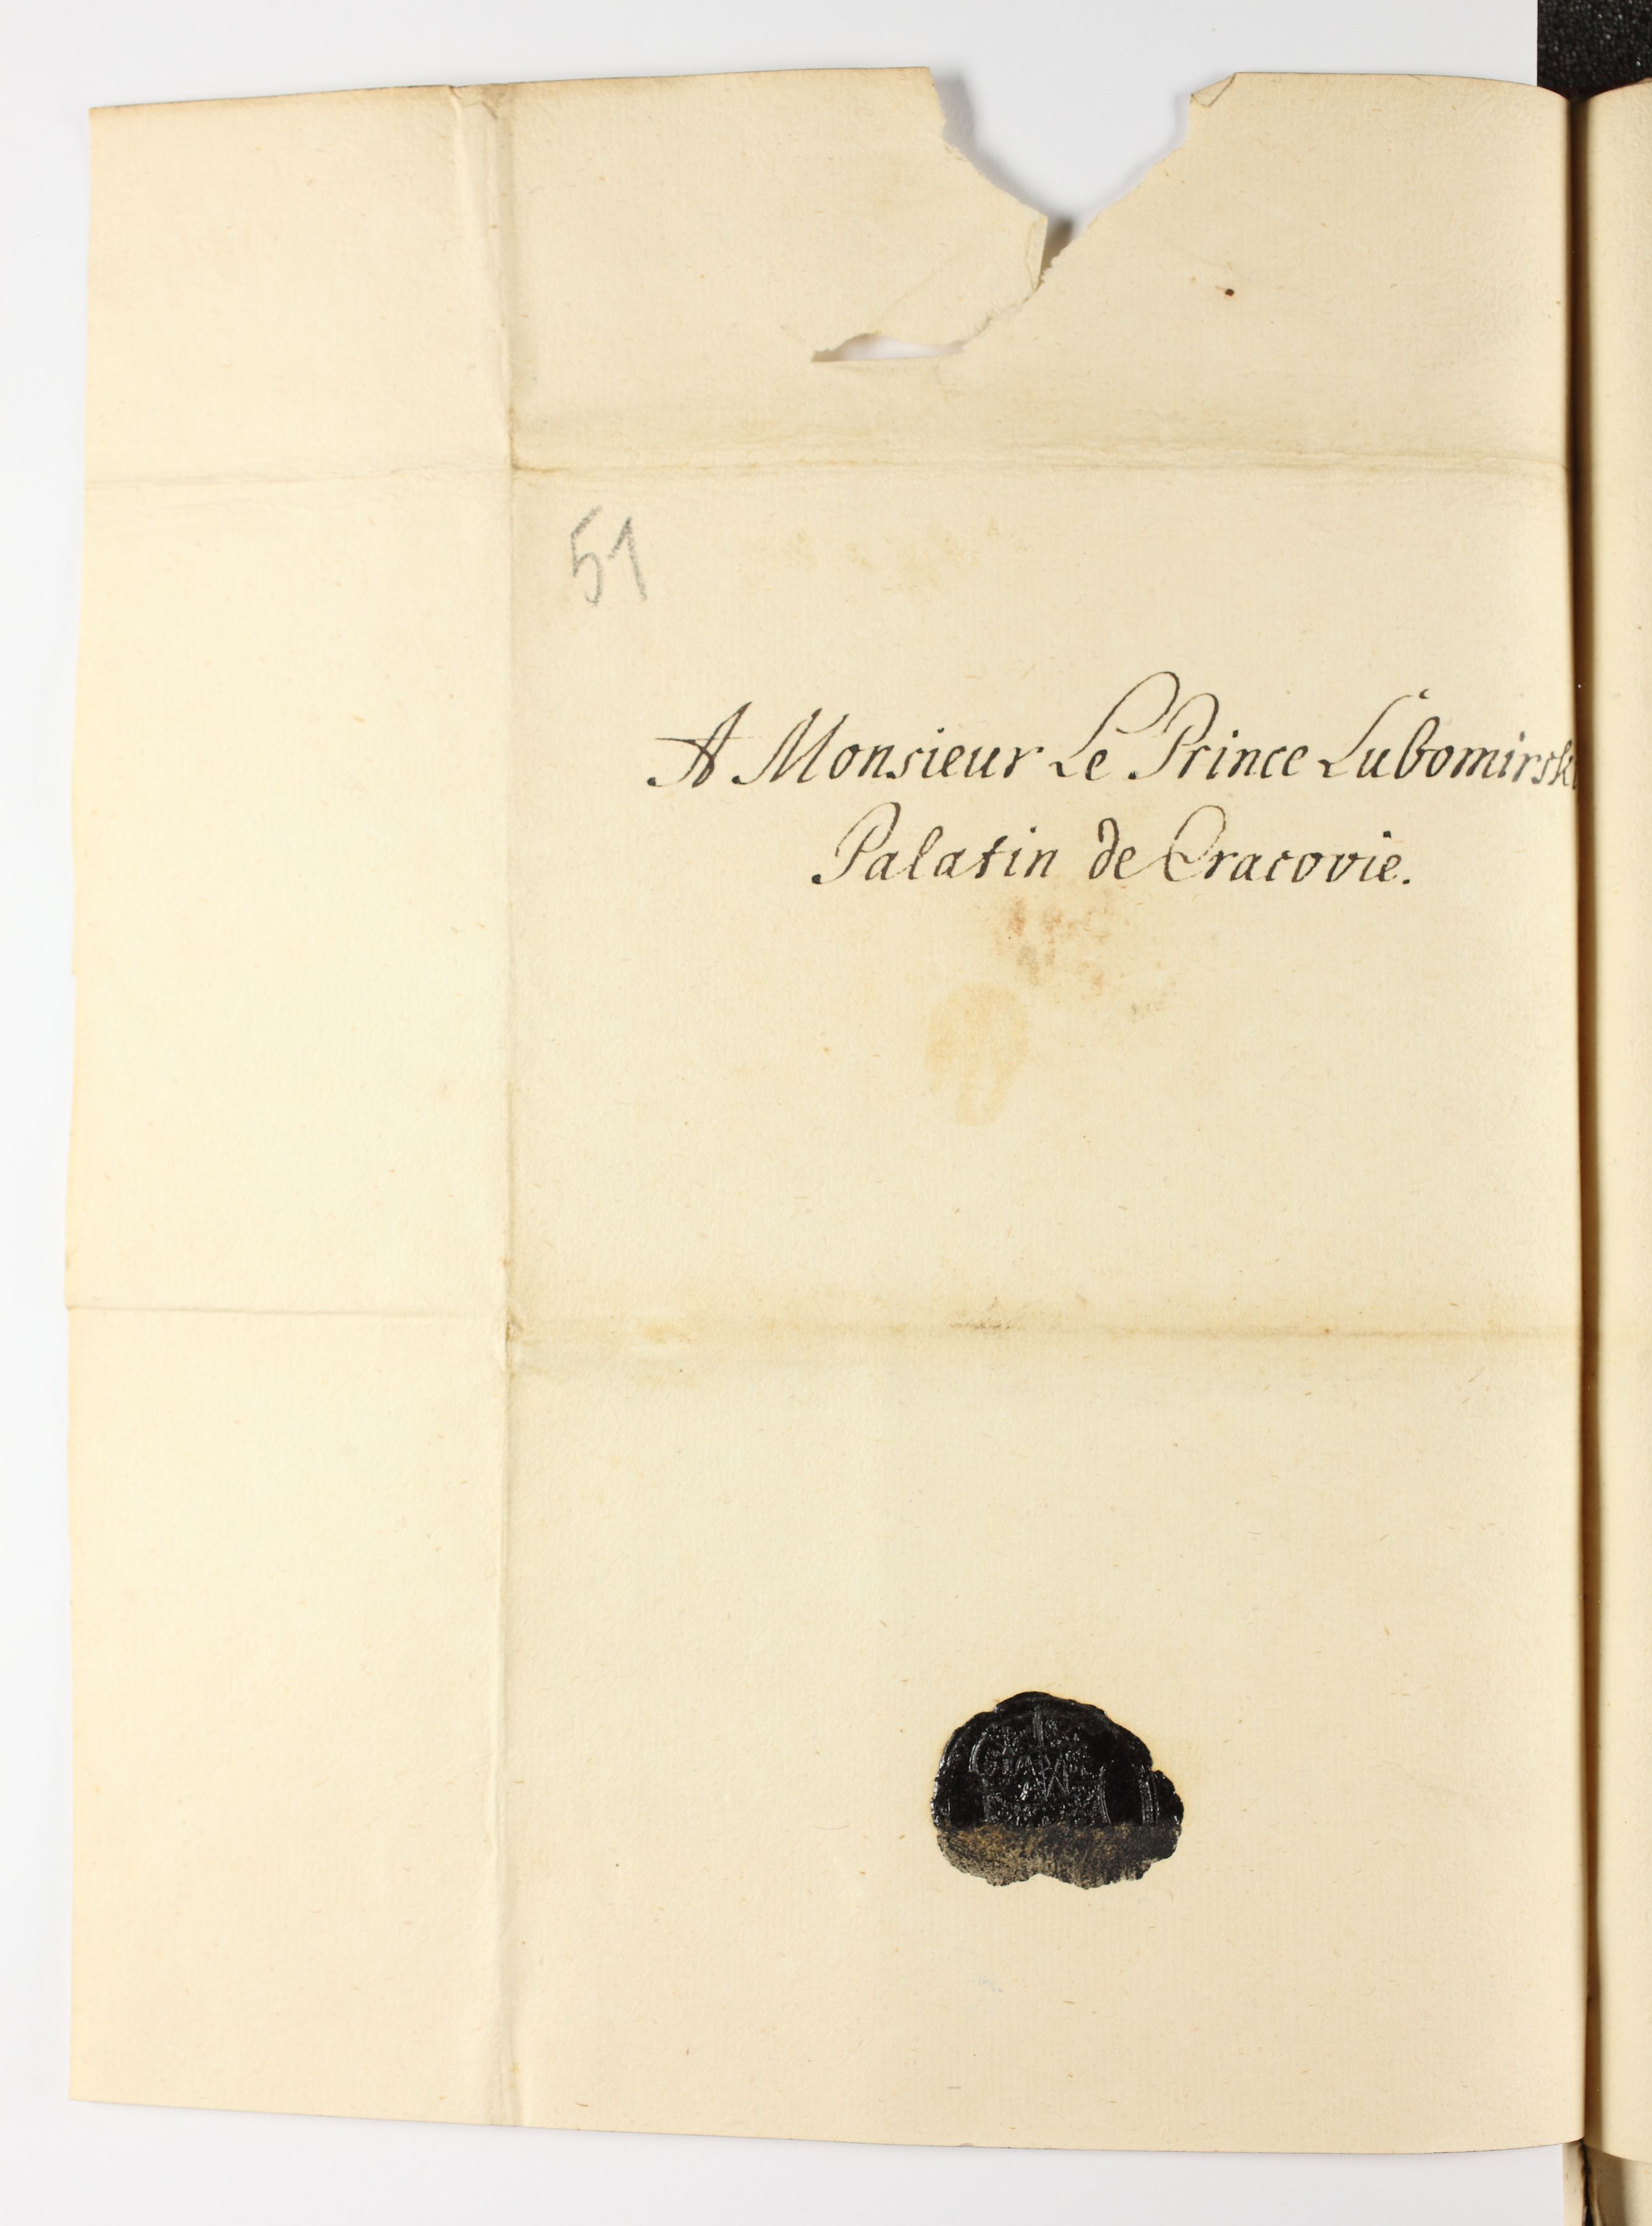 51
A Monsieur Le Prince Lubomirski
Palatin de Cracovie.